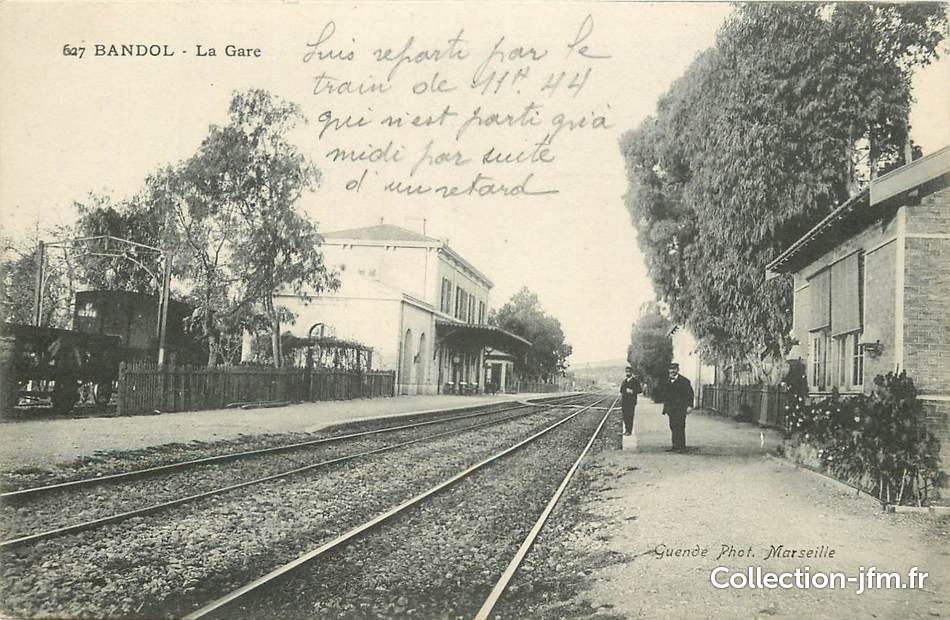 627 BANDOL - La Gare
Suis reparti par le
train de 11h. 44
qui n'est parti qu'à
midi par suite
d'un retard
Guende Phot. Marseille
Collection-jfm.fr